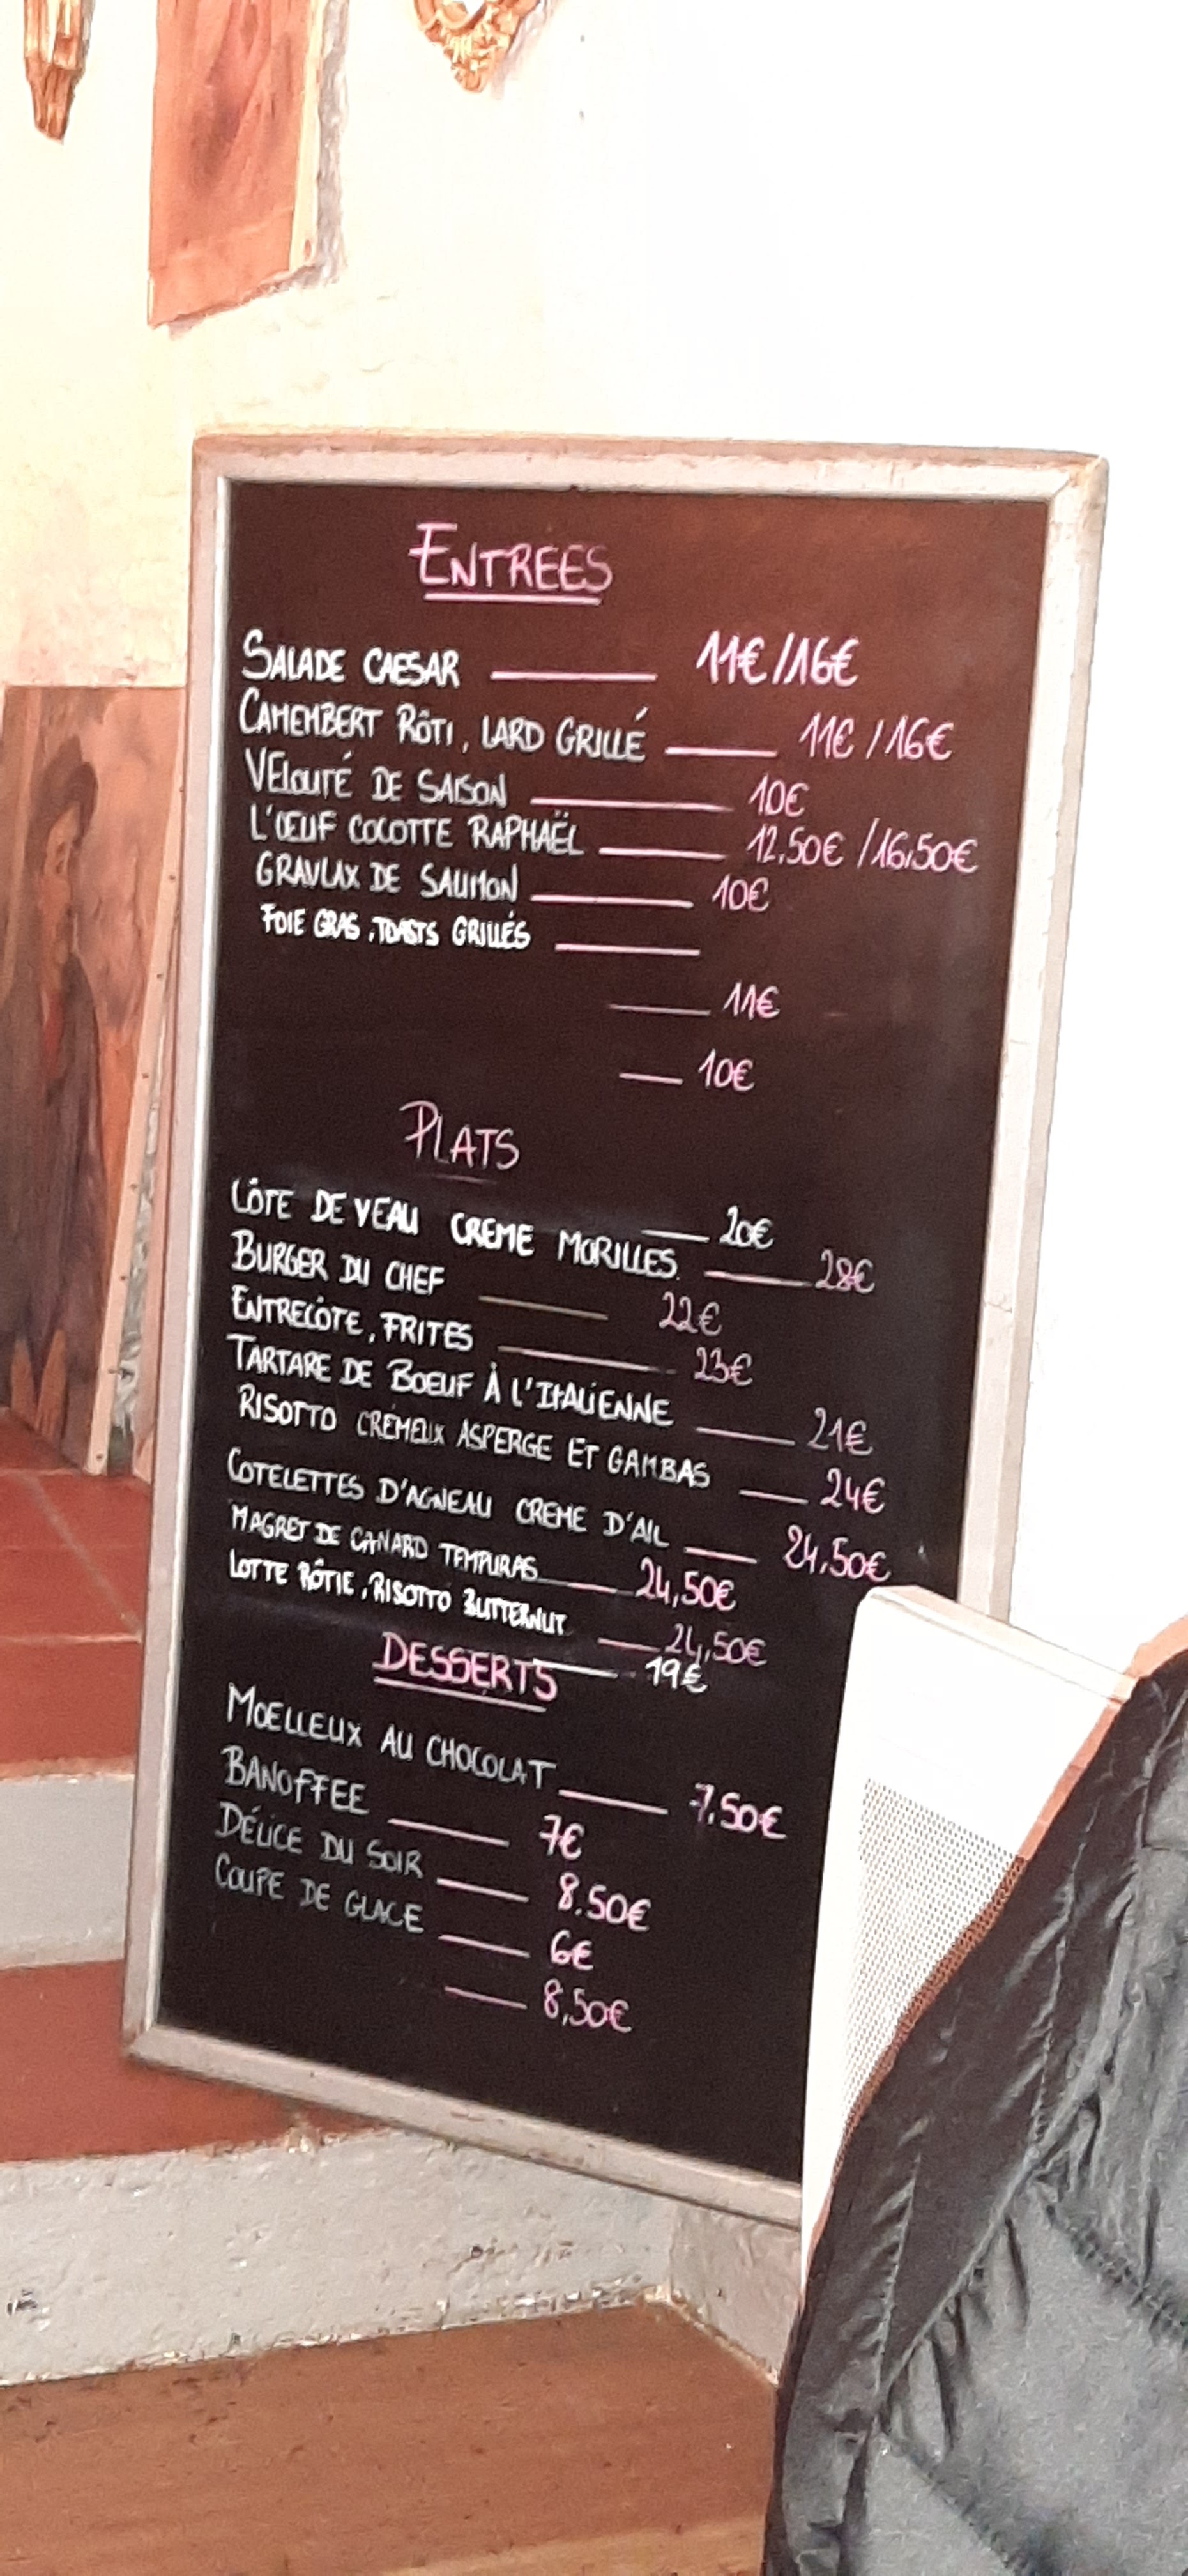 ENTREES
SALADE CAESAR 11€/16€
CAMEMBERT RÔTI, LARD GRILLÉ 11€/16€
VELOUTÉ DE SAISON 10€
L'ŒUF COCOTTE RAPHAËL 12.50€/16.50€
GRAVLAX DE SAUMON 10€
FOIE GRAS, TOASTS GRILLÉS
11€
10€
PLATS
20€
CÔTE DE VEAU CREME MORILLES 28€
BURGER DU CHEF 22€
ENTRECÔTE, FRITES 23€
TARTARE DE BOEUF À L'ITALIENNE 21€
RISOTTO CRÉMEUX ASPERGE ET GAMBAS 24€
COTELETTES D'AGNEAU CREME D'AIL 24,50€
MAGRET DE CANARD TEMPURAS 24,50€
LOTTE RÔTIE, RISOTTO BUTTERNUT 24,50€
19€
DESSERTS
MOELLEUX AU CHOCOLAT 7.50€
BANOFFEE 7€
DÉLICE DU SOIR 8.50€
COUPE DE GLACE 6€
8,50€